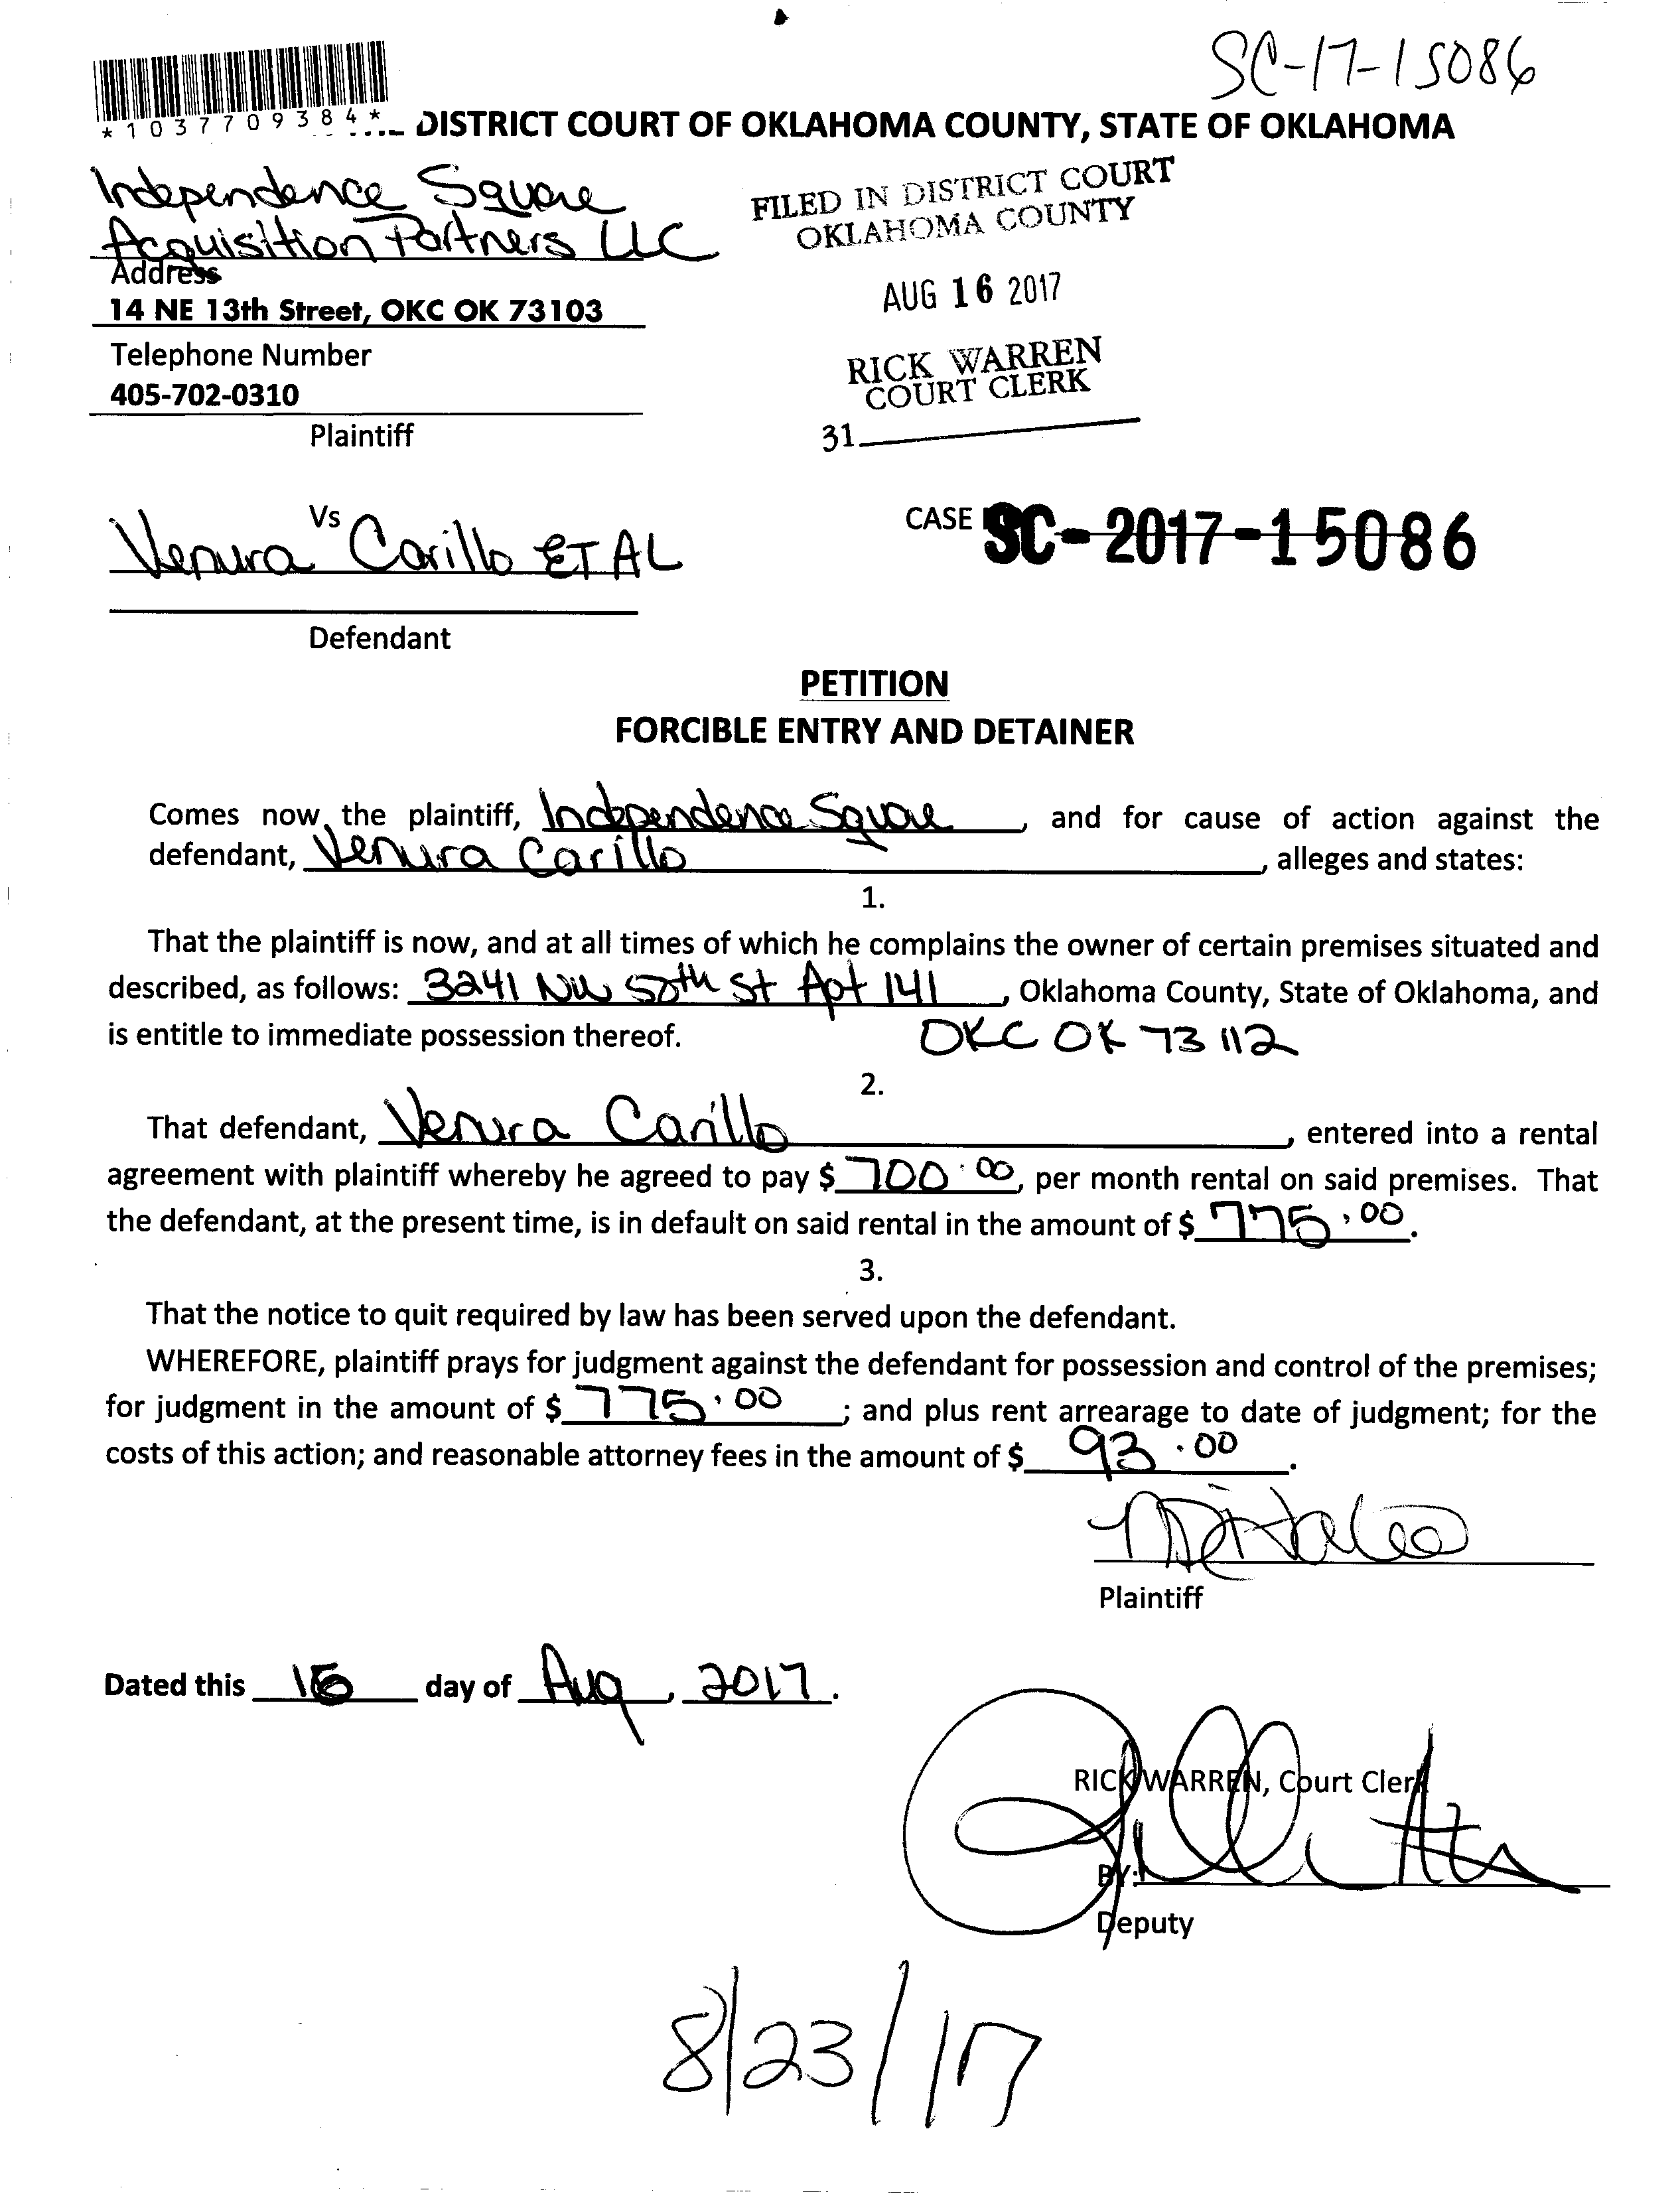 SC-17-15086
*1037709384*
DISTRICT COURT OF OKLAHOMA COUNTY, STATE OF OKLAHOMA
Independence Square
Acquisition Partners LLC
Address
14 NE 13th Street, OKC OK 73103
Telephone Number
405-702-0310
Plaintiff
FILED IN DISTRICT COURT
OKLAHOMA COUNTY
AUG 16 2017
RICK WARREN
COURT CLERK
31
Vs
Venura Carillo ET AL
Defendant
CASE SC-2017-15086
PETITION
FORCIBLE ENTRY AND DETAINER
Comes now the plaintiff, Independence Square, and for cause of action against the
defendant, Venura Carillo, alleges and states:
1.
That the plaintiff is now, and at all times of which he complains the owner of certain premises situated and
described, as follows: 3241 NW 50th St Apt 141, Oklahoma County, State of Oklahoma, and
is entitle to immediate possession thereof. OKC OK 73112
2.
That defendant, Venura Carillo, entered into a rental
agreement with plaintiff whereby he agreed to pay $ 700.00, per month rental on said premises. That
the defendant, at the present time, is in default on said rental in the amount of $ 775.00.
3.
That the notice to quit required by law has been served upon the defendant.
WHEREFORE, plaintiff prays for judgment against the defendant for possession and control of the premises;
for judgment in the amount of $ 775.00; and plus rent arrearage to date of judgment; for the
costs of this action; and reasonable attorney fees in the amount of $ 93.00.
Plaintiff
Dated this 16 day of Aug, 2017.
RICK WARREN, Court Clerk
BY:
Deputy
8/23/17